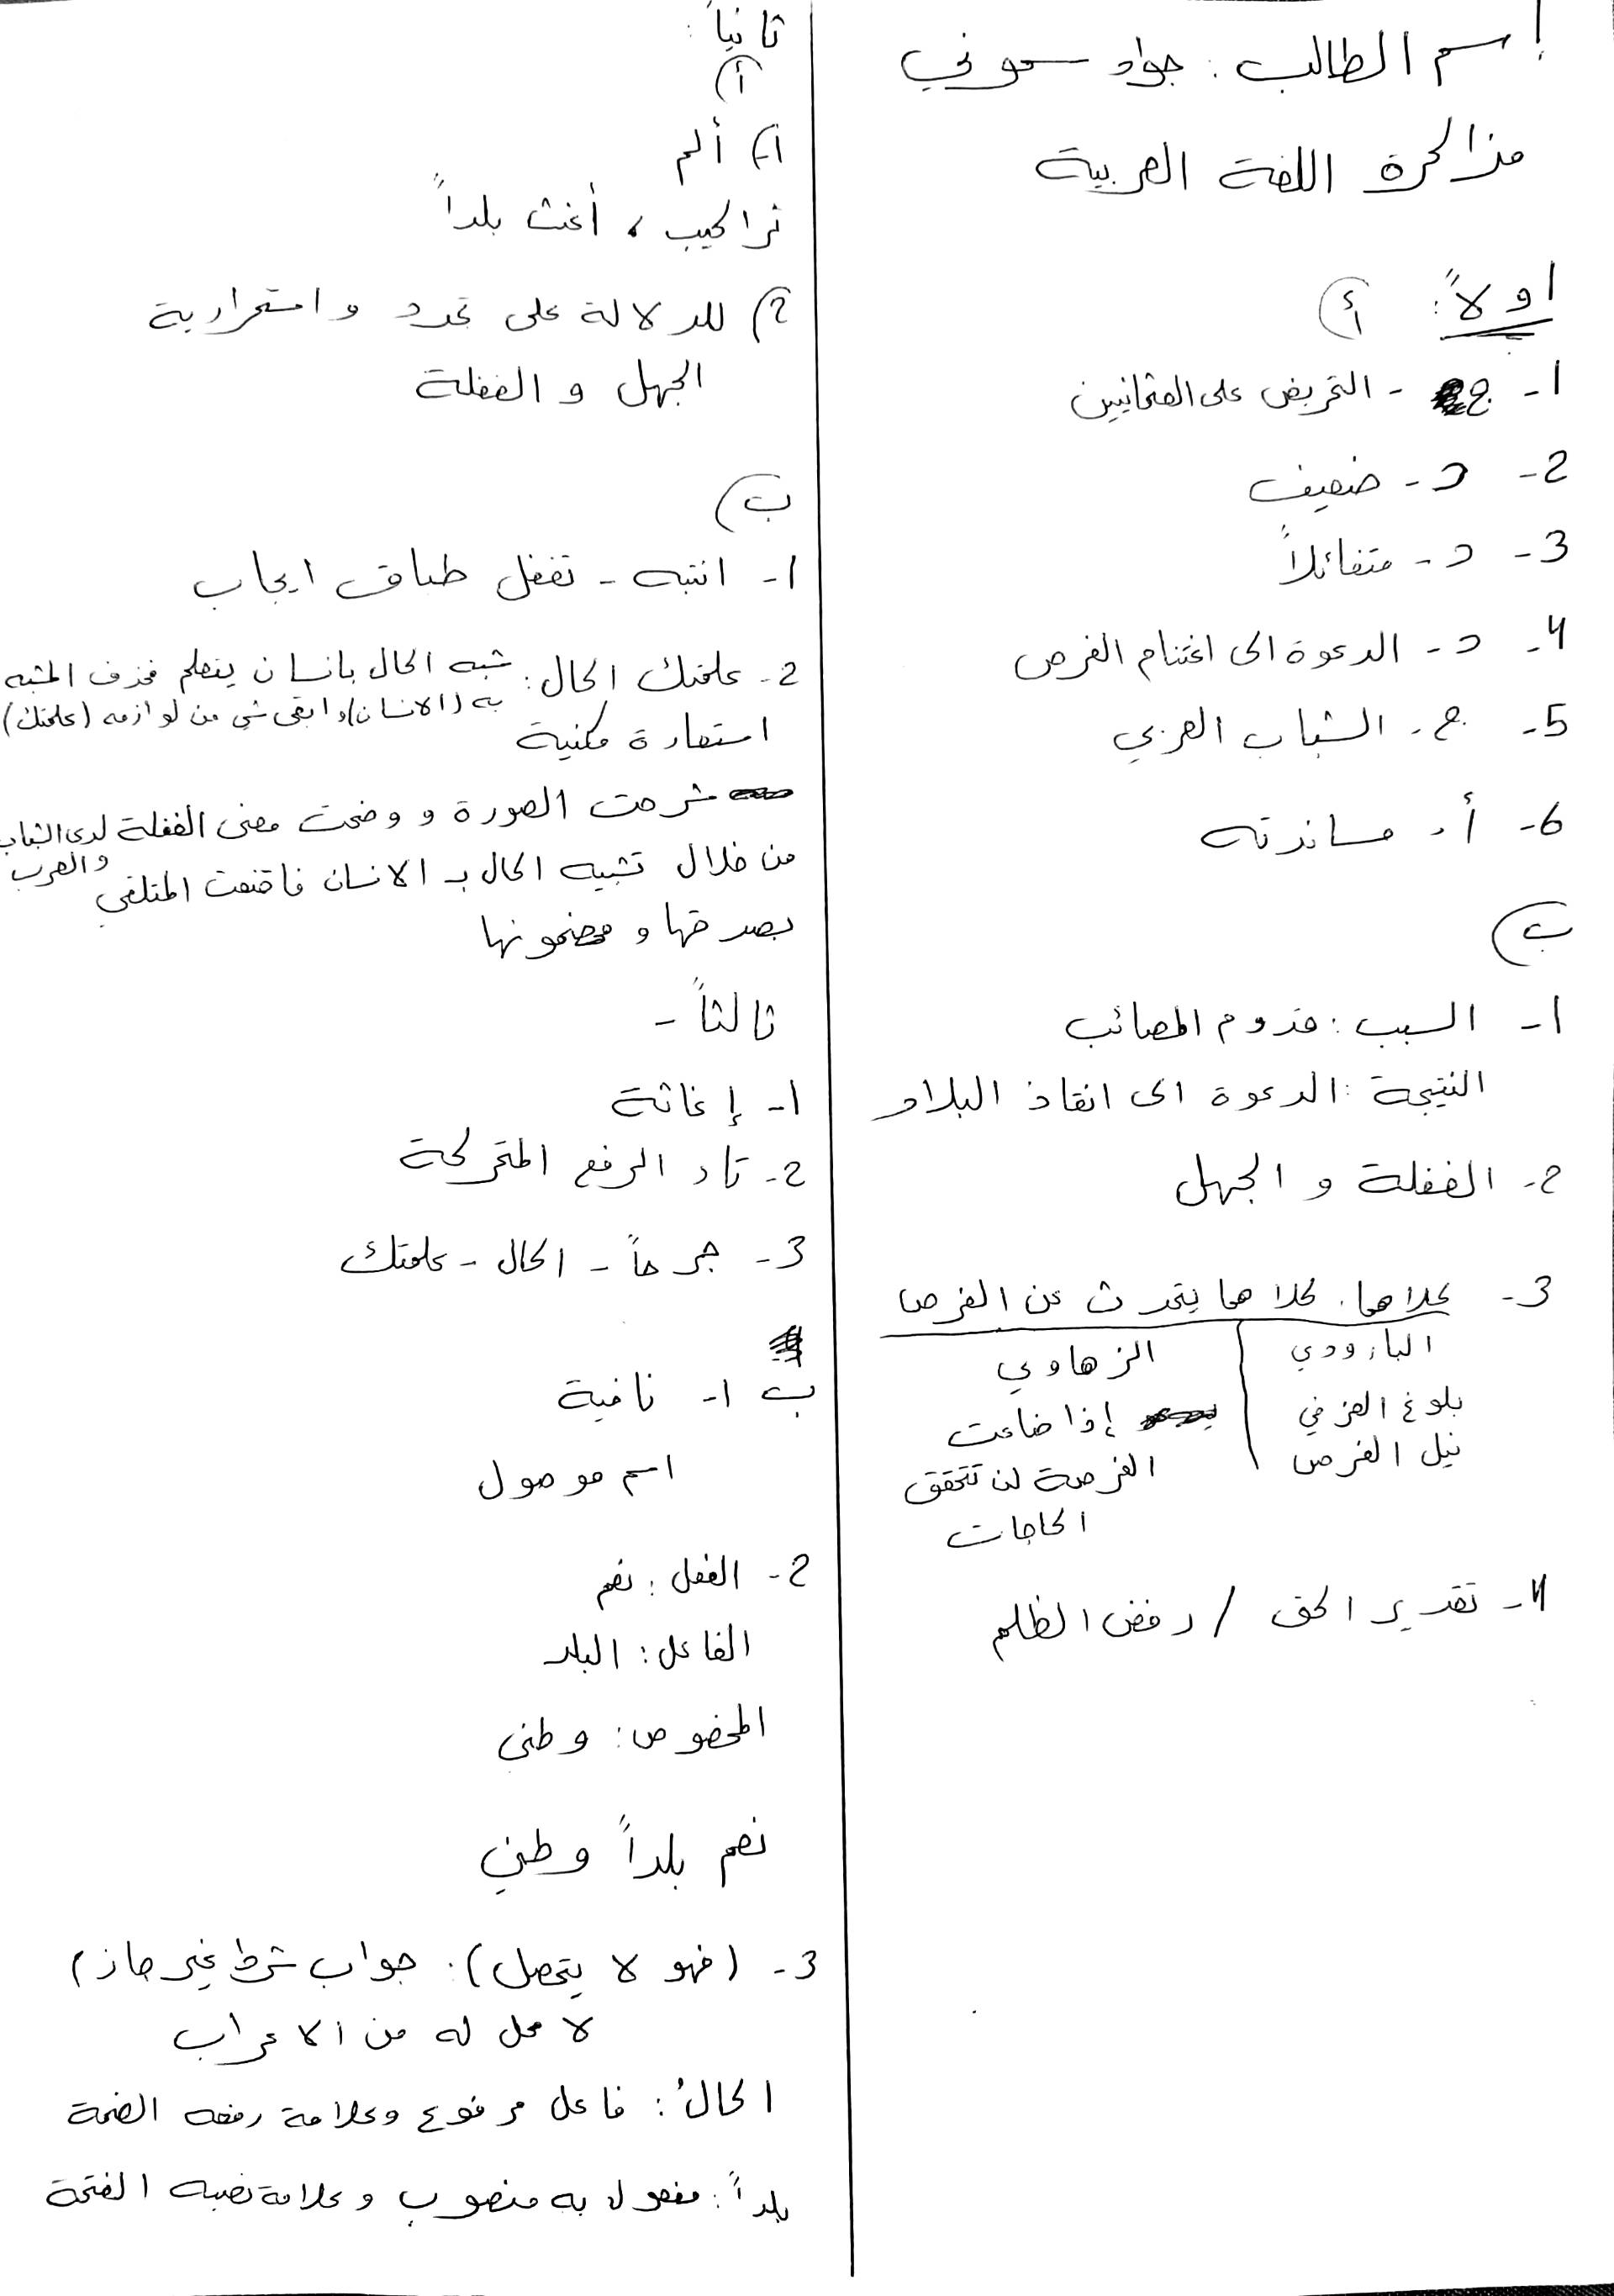 اسم الطالب : جواد سموني
مذاكرة اللغة العربية
اولاً : أ)
1- ج - التحريض على العثمانيين
2- د - ضعيف
3- د - متفائلاً
4- د - الدعوة الى اغتنام الفرص
5- ج - الشباب العربي
6- أ - مساندته
ب)
1- السبب : قدوم المصائب
النتيجة : الدعوة الى انقاذ البلاد
2- الغفلة و الجهل
3- كلاهما . كلاهما يتحدث عن الفرص
البارودي | الزهاوي
بلوغ العز في | إذا ضاعت
نيل الفرص | الفرصة لن تتحقق
الحاجات
4- تقدير الحق / رفض الظلم
ثانياً :
أ)
1) ألم
تراكيب ، أغث بلداً
2) للدلالة على تجدد و استمرارية
الجهل و الغفلة
ب)
1- انتبه - تغفل طباق ايجاب
2- علمتك الحال : شبه الحال بانسان يتعلم فحذف المشبه
به (الانسان) وابقى شي من لوازمه (علمتك)
استعارة مكنية
شرحت الصورة و وضحت معنى الغفلة لدى الشباب
والعرب
من خلال تشبيه الحال بـ الانسان فاقنعت المتلقي
بصدقها و مضمونها
ثالثاً -
1- إغاثة
2- تاء الرفع المتحركة
3- جرحاً - الحال - علمتك
ب 1- نافية
اسم موصول
2- الفعل : نعم
الفاعل : البلد
المخصوص : وطني
نعم بلداً وطني
3- (فهو لا يتحصل) : جواب شرط غير جازم
لا محل له من الاعراب
الحالُ : فاعل مرفوع وعلامة رفعه الضمة
بلداً : مفعول به منصوب وعلامة نصبه الفتحة